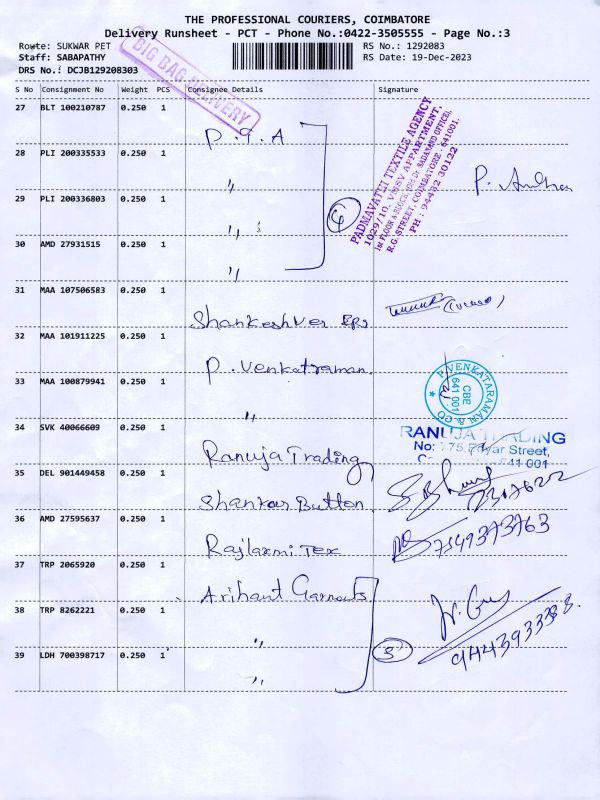 THE PROFESSIONAL COURIERS, COIMBATORE
Delivery Runsheet - PCT - Phone No.:0422-3505555 - Page No.:3
Route: SUKWAR PET
RS No.: 1292083
Staff: SABAPATHY
RS Date: 19-Dec-2023
DRS No.: DCJB129208303
BIG BAG DELIVERY
S No Consignment No Weight PCS Consignee Details Signature
27 BLT 100210787 0.250 1 P.T.A
28 PLI 200335533 0.250 1 "
29 PLI 200336803 0.250 1 "
30 AMD 27931515 0.250 1 "
4
PADMAVATHI TEXTILE AGENCY
1029/10, VKSV APPARTMENT,
1st FLOOR A-BLOCK, (Old Dr. SADANAND OFFICE),
R.G. STREET, COIMBATORE - 641001.
PH : 94432 30122
31 MAA 107506583 0.250 1 Shankeshver
32 MAA 101911225 0.250 1 P. Venkatraman
33 MAA 100879941 0.250 1 "
P. VENKATARAMAN & CO
CBE
641 001
34 SVK 40066609 0.250 1 Ranuja Trading
RANUJA TRADING
No: 175, Street,
641 001
35 DEL 901449458 0.250 1 Shankar Button
36 AMD 27595637 0.250 1 Rajlaxmi Tex
7549373763
37 TRP 2065920 0.250 1 Arihant Garments
38 TRP 8262221 0.250 1 "
39 LDH 700398717 0.250 1 "
3